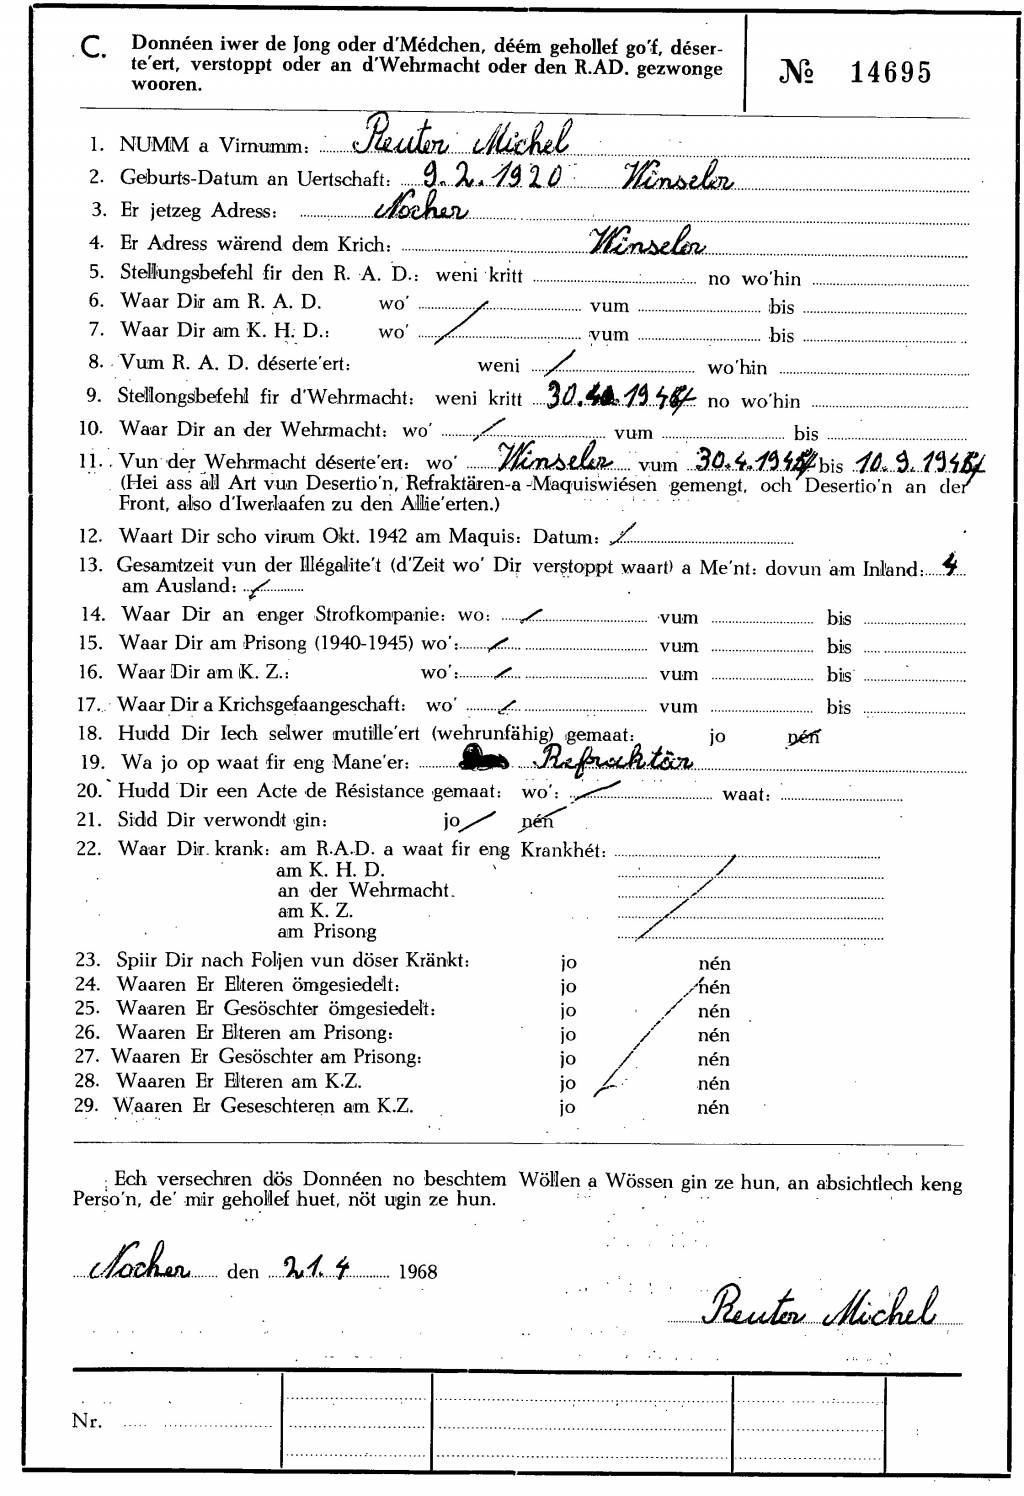 C. Donnéen iwer de Jong oder d'Médchen, déém gehollef go'f, déser-
te'ert, verstoppt oder an d'Wehrmacht oder den R.AD. gezwonge
wooren.
№ 14695
1. NUMM a Virnumm: Reuter Michel
2. Geburts-Datum an Uertschaft: 9.2.1920 Winseler
3. Er jetzeg Adress: Nocher
4. Er Adress wärend dem Krich: Winseler
5. Stellungsbefehl fir den R. A. D.: weni kritt no wo'hin
6. Waar Dir am R. A. D. wo' vum bis
7. Waar Dir am K. H. D.: wo' vum bis
8. Vum R. A. D. déserte'ert: weni wo'hin
9. Stellongsbefehl fir d'Wehrmacht: weni kritt 30. no wo'hin
10. Waar Dir an der Wehrmacht: wo' vum bis
11. Vun der Wehrmacht déserte'ert: wo' Winseler vum 30.4. bis 10.9.
(Hei ass all Art vun Desertio'n, Refraktären-a -Maquiswiésen gemengt, och Desertio'n an der
Front, also d'Iwerlaafen zu den Allie'erten.)
12. Waart Dir scho virum Okt. 1942 am Maquis: Datum:
13. Gesamtzeit vun der Illégalite't (d'Zeit wo' Dir verstoppt waart) a Me'nt: dovun am Inland: 4
am Ausland:
14. Waar Dir an enger Strofkompanie: wo: vum bis
15. Waar Dir am Prisong (1940-1945) wo': vum bis
16. Waar Dir am K. Z.: wo': vum bis
17. Waar Dir a Krichsgefaangeschaft: wo' vum bis
18. Hudd Dir Iech selwer mutille'ert (wehrunfähig) gemaat: jo nén
19. Wa jo op waat fir eng Mane'er: Refraktär
20. Hudd Dir een Acte de Résistance gemaat: wo': waat:
21. Sidd Dir verwondt gin: jo nén
22. Waar Dir krank: am R.A.D. a waat fir eng Krankhét:
am K. H. D.
an der Wehrmacht.
am K. Z.
am Prisong
23. Spiir Dir nach Foljen vun döser Kränkt: jo nén
24. Waaren Er Elteren ömgesiedelt: jo nén
25. Waaren Er Gesöschter ömgesiedelt: jo nén
26. Waaren Er Elteren am Prisong: jo nén
27. Waaren Er Gesöschter am Prisong: jo nén
28. Waaren Er Elteren am K.Z. jo nén
29. Waaren Er Geseschteren am K.Z. jo nén
Ech versechren dös Donnéen no beschtem Wöllen a Wössen gin ze hun, an absichtlech keng
Perso'n, de' mir gehollef huet, nöt ugin ze hun.
Nocher den 21.4 1968
Reuter Michel
Nr.